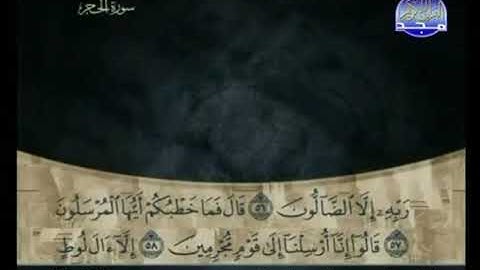 سورة الحجر
مجد
رَبِّهِۦٓ إِلَّا ٱلضَّآلُّونَ ٥٦ قَالَ فَمَا خَطْبُكُمْ أَيُّهَا ٱلْمُرْسَلُونَ
٥٧ قَالُوٓا۟ إِنَّآ أُرْسِلْنَآ إِلَىٰ قَوْمٍ مُّجْرِمِينَ ٥٨ إِلَّآ ءَالَ لُوطٍ